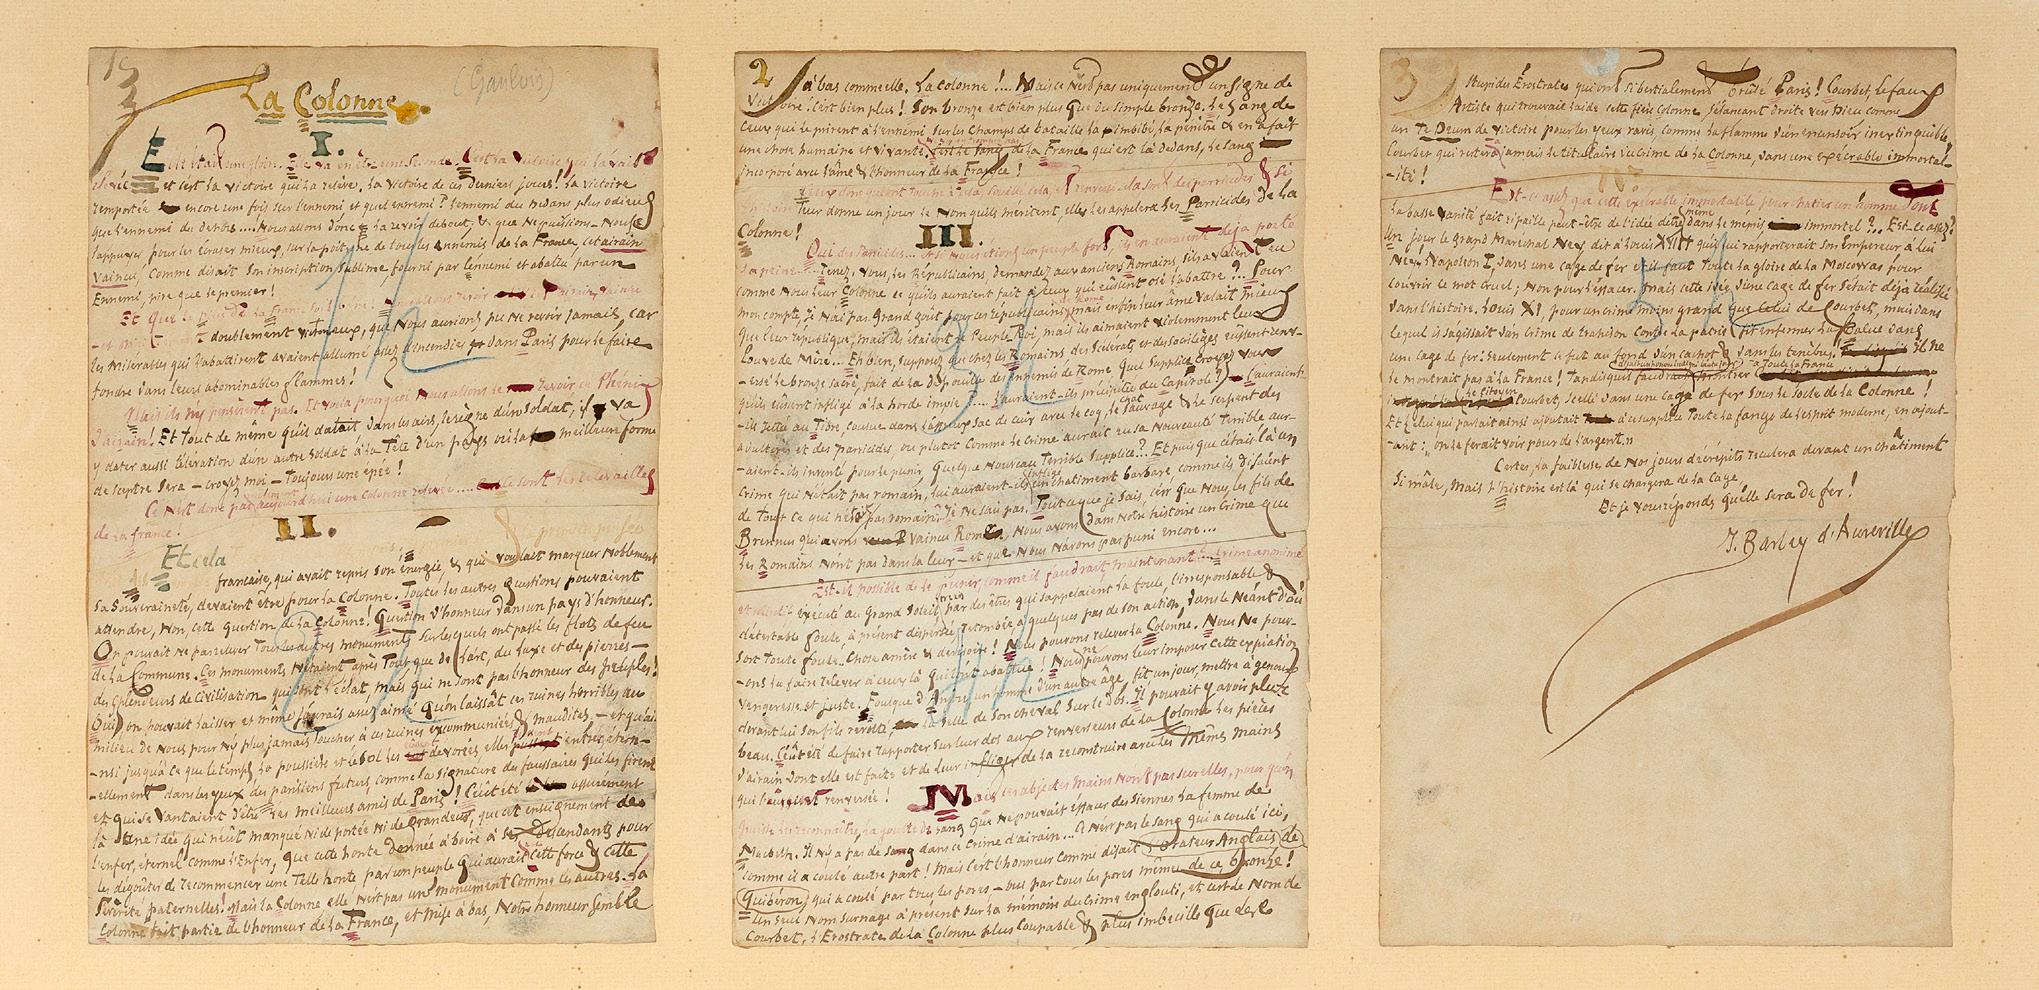 1
(Gaulois)
La Colonne.
I.
Elle était loin. Elle va en être une seconde. C'est la victoire qui l'avait
élevée et c'est la victoire qui la relève. La victoire de ces derniers jours! la victoire
remportée encore une fois sur l'ennemi et quel ennemi? l'ennemi du dedans plus odieux
que l'ennemi du dehors.... Nous allons donc la revoir debout, & que ne puissions-nous
l'appuyer pour les écraser mieux, sur la poitrine de tous les ennemis de la France, cet airain
vaincu, comme disait son inscription sublime, fourni par l'ennemi et abattu par un
Ennemi, pire que le premier!
Et que le de la France soit Nous allons revoir l'airain vaincu
et doublement victorieux, que nous aurions pu ne revoir jamais, car
les misérables qui l'abattirent avaient allumé assez d'incendies dans Paris pour le faire
fondre dans leurs abominables flammes!
Mais ils n'y pensèrent pas. Et voilà pourquoi nous allons le revoir ce Phénix
d'airain! Et tout de même qu'il datait dans les airs, le règne d'un soldat, il va
y dater aussi l'élévation d'un autre soldat à la Tête d'un pays où la meilleure forme
de sceptre sera – croyez moi – toujours une épée!
Ce n'est donc pas seulement aujourd'hui une colonne relevée.... Ce sont les relevailles
de la France!
II.
Et cela
française, qui avait repris son énergie, & que voulait marquer noblement
sa souveraineté, devaient être pour la Colonne. Toutes les autres questions pouvaient
attendre, Non, cette question de la Colonne! Question d'honneur dans un pays d'honneur.
On pouvait ne pas relever Tous les autres monuments sur lesquels ont passé les flots de feu
de la Commune. Ces monuments n'étaient après Tout que de l'art, du luxe et des pierres –
des splendeurs de civilisation qui ont l'éclat, mais qui ne sont pas l'honneur des peuples!
Oui, on pouvait laisser et même j'aurais assez aimé qu'on laissât ces ruines horribles au
milieu de nous pour n'y plus jamais toucher à ces ruines excommuniées & maudites, – et qu'ain
-nsi jusqu'à ce que le temps, la poussière et le sol les eussent dévorées, elles entrer étern-
-ellement dans les yeux des parisiens futurs comme la signature des faussaires qui les firent
et qui se vantaient d'être les meilleurs amis de Paris! C'eût été assurément
là Une idée qui n'eût manqué ni de portée ni de grandeur, que cet enseignement de
l'enfer, éternel comme l'Enfer, que cette honte donnée à boire à ses descendants pour
les dégoûter de recommencer une Telle honte par un peuple qui aurait cette force & cette
sévérité paternelles! Mais la Colonne elle n'est pas un monument comme les autres. La
Colonne fait partie de l'honneur de la France, et mise à bas, Notre honneur semble
2
à bas comme elle. La Colonne!... Mais ce n'est pas uniquement un signe de
Victoire, c'est bien plus! Son bronze est bien plus que du simple bronze. Le sang de
ceux qui le prirent à l'ennemi sur les champs de bataille l'a imbibé, l'a pénétré & en a fait
une chose humaine et vivante. c'est le sang de la France qui est là dedans, le sang
incorporé avec l'âme & l'honneur de la France!
Ceux donc qui ont touché à cela, souillé cela, et renversé cela sont des parricides & si
l'histoire leur donne un jour le Nom qu'ils méritent, elle les appelera Les Parricides de la
Colonne!
III.
Oui des Parricides... et si nous étions un peuple fort, ils en auraient déjà porté
la peine. Tenez, vous, les Républicains, demandez aux anciens Romains s'ils avaient eu
comme nous leur Colonne ce qu'ils auraient fait à ceux qui eussent osé l'abattre?... Pour
mon compte, je n'ai pas grand goût pour ces républicains, mais enfin leur âme valait mieux
que leur république, mais ils étaient le Peuple Roi, mais ils aimaient violemment leur
Louve de Mère... Eh bien, supposez que chez les Romains des Scélérats et des sacrilèges eussent renv-
-ersé le bronze sacré, fait de la dépouille des ennemis de Rome quel supplice croyez vous
qu'ils eussent infligé à la horde impie?.... L'auraient-ils précipitée du Capitole? L'auraient-
-ils jetée au Tibre, cousue dans leur sac de cuir avec le coq, le chat sauvage & le serpent des
adultères et des parricides, ou plutôt comme le crime aurait eu sa Nouveauté Terrible aur-
-aient-ils inventé pour le punir quelque Nouveau Terrible supplice?.. Et puis que c'était là un
crime qui n'était pas romain, lui auraient-ils infligé un châtiment barbare, comme ils disaient
de Tout ce qui n'était pas romain? Je ne sais pas. Tout ce que je sais, c'est que Nous, les fils de
Brennus qui avons vaincu Rome, Nous avons dans notre histoire un crime que
les Romains n'ont pas dans la leur – et que nous n'avons pas puni encore...
Est-il possible de le punir comme il faudrait maintenant?... Crime anonyme
et collectif, exécuté au Grand Soleil, par des êtres qui s'appelaient la foule l'irresponsable &
détestable foule, à présent dispersée, retombée à quelques pas de son action, dans le Néant d'où
sort toute foule. Chose amère & dérisoire! Nous pouvons relever la Colonne. Nous Ne pour-
-ons la faire relever à ceux-là qui l'ont abattue! Nous ne pouvons leur imposer cette expiation
vengeresse et juste. Foulque d'Anjou un homme d'un autre âge, fit un jour, mettre à genoux
devant lui son fils révolté, la selle de son cheval sur le dos. Il pouvait y avoir plus
beau. C'eût été de faire rapporter sur leur dos aux renverseurs de la Colonne les pièces
d'airain dont elle est faite et de leur infliger de la reconstruire avec les mêmes mains
qui l'avaient renversée!
Mais ces abjectes mains n'ont pas sur elles, pour qu'on
puisse les reconnaître, la goutte de sang que ne pouvait effacer des siennes la femme de
Macbeth. Il n'y a pas de sang dans ce crime d'airain... Ce n'est pas le sang qui a coulé ici,
comme il a coulé autre part! Mais c'est l'honneur comme disait l'orateur Anglais de
Quibéron, qui a coulé par tous les pores – oui par tous les pores même de ce bronze!
Un seul Nom surnage à présent sur la mémoire du crime englouti, et c'est le Nom de
Courbet, l'Erostrate de la Colonne plus coupable & plus imbécille que les
3
stupides Erostrates qui ont si bestialement brûlé Paris! Courbet le faux
Artiste qui trouvait laide cette fière Colonne, s'élançant droite vers Dieu comme
un Te Deum de victoire pour les yeux ravis comme la flamme d'un encensoir inextinguible,
Courbet qui restera à jamais le titulaire du crime de la Colonne, dans une exécrable immortal-
-ité!
IV.
Est-ce assez que cette exécrable immortalité pour châtier un homme dont
la basse vanité fait ripaille peut-être de l'idée d'être même dans le mépris immortel?.. Est-ce assez?
Un jour le Grand Maréchal Ney dit à Louis XVIII qu'il rapporterait son Empereur à lui
Ney, Napoléon I, dans une cage de fer et il faut toute la gloire de la Moscowa pour
couvrir le mot cruel; non pour l'effacer. Mais cette idée d'une cage de fer s'était déjà réalisée
dans l'histoire. Louis XI, pour un crime moins grand que celui de Courbet, mais dans
lequel il s'agissait d'un crime de trahison contre la patrie fit enfermer La Balue dans
une cage de fer. Seulement ce fut au fond d'un cachot & dans les ténèbres. Il ne
le montrait pas à la France! Tandis qu'il faudrait montrer à Toute la France
le citoyen Courbet, scellé dans une cage de fer sous le socle de la Colonne!
Et celui qui parlait ainsi ajoutait à ce supplice Toute la fange de l'esprit moderne, en ajout-
-ant: „on le ferait voir pour de l'argent.„
Certes, la faiblesse de nos jours décrépits reculera devant un châtiment
si mâle, mais l'histoire est là qui se chargera de la cage
Et je vous réponds qu'elle sera de fer!
J. Barbey d'Aurevilly